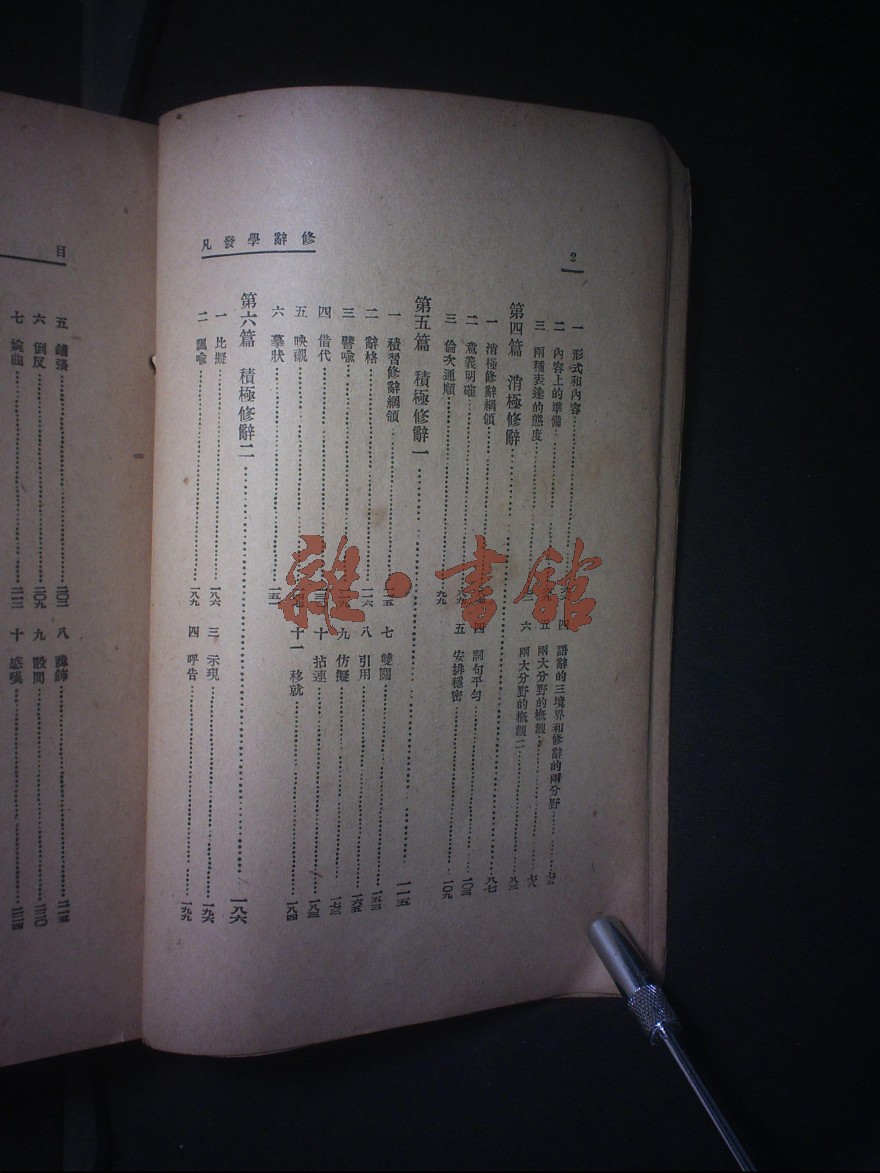 修辭學發凡
2
一 形式和內容
二 內容上的準備
三 兩種表達的態度
四 語辭的三境界和修辭的兩分野
五 兩大分野的概觀一
六 兩大分野的概觀二
第四篇 消極修辭 八七
一 消極修辭綱領
二 意義明確
三 倫次通順 九九
四 詞句平勻 一〇三
五 安排穩密 一〇九
第五篇 積極修辭一 一一五
一 積習修辭綱領
二 辭格 一一六
三 譬喻
四 借代
五 映襯
六 摹狀 一五一
七 雙關 一五三
八 引用 一六五
九 仿擬 一七三
十 拈連 一八三
十一 移就 一八四
第六篇 積極修辭二 一八六
一 比擬 一八六
二 諷喻 一八九
三 示現 一九六
四 呼告 一九九
目
五 鋪張 二〇二
六 倒反 二〇九
七 婉曲 二一三
八 諱飾 二一五
九 設問 二二〇
十 感嘆 二二四
雜·書館